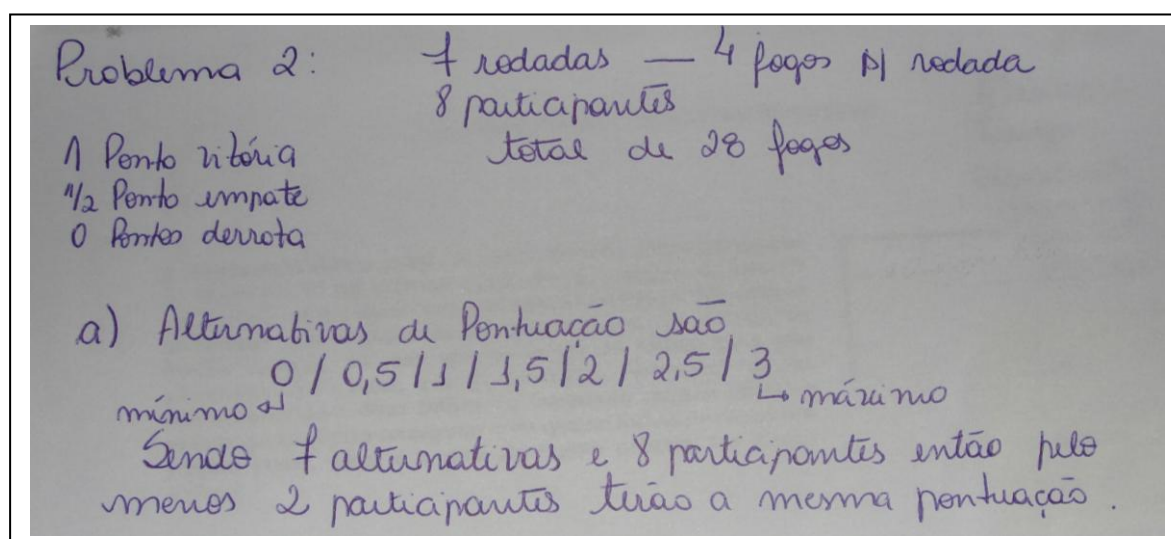 Problema 2: 7 rodadas — 4 jogos p/ rodada
8 participantes
1 Ponto vitória total de 28 jogos
1/2 Ponto empate
0 Pontos derrota
a) Alternativas de Pontuação são
0 / 0,5 / 1 / 1,5 / 2 / 2,5 / 3
mínimo máximo
Sendo 7 alternativas e 8 participantes então pelo
menos 2 participantes terão a mesma pontuação.